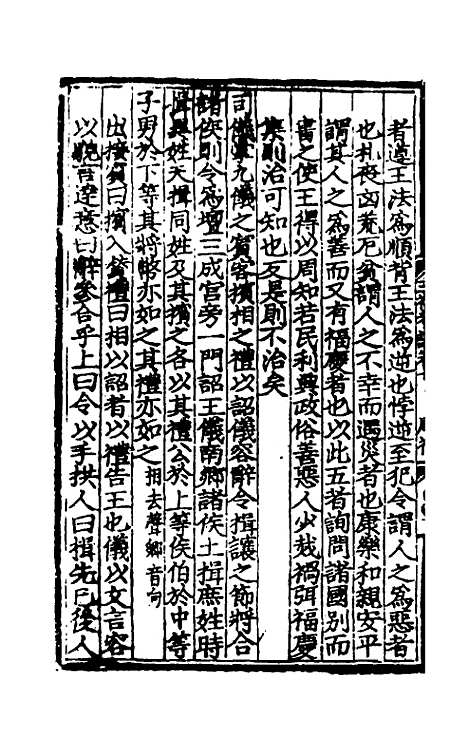 者遵王法為順背王法為逆也悖逆至犯令謂人之為惡者
也札喪凶荒厄貧謂人之不幸而遇災者也康樂和親安平
謂其人之為善而又有福慶者也以此五者詢問諸國別而
書之使王得以周知若民利興政俗善惡人少烖禍弭福慶
集則治可知也反是則不治矣
司儀掌九儀之賓客擯相之禮以詔儀容辭令揖讓之節將合
諸侯則令為壇三成宮旁一門詔王儀南鄉諸侯土揖庶姓時
揖異姓天揖同姓及其擯之各以其禮公於上等侯伯於中等
子男於下等其將幣亦如之其禮亦如之相去聲鄉音向
出接賓曰擯入贊禮曰相以詔者以禮告王也儀以文言容
以貌言達意曰辭合乎上曰令以手拱人曰揖先己後人